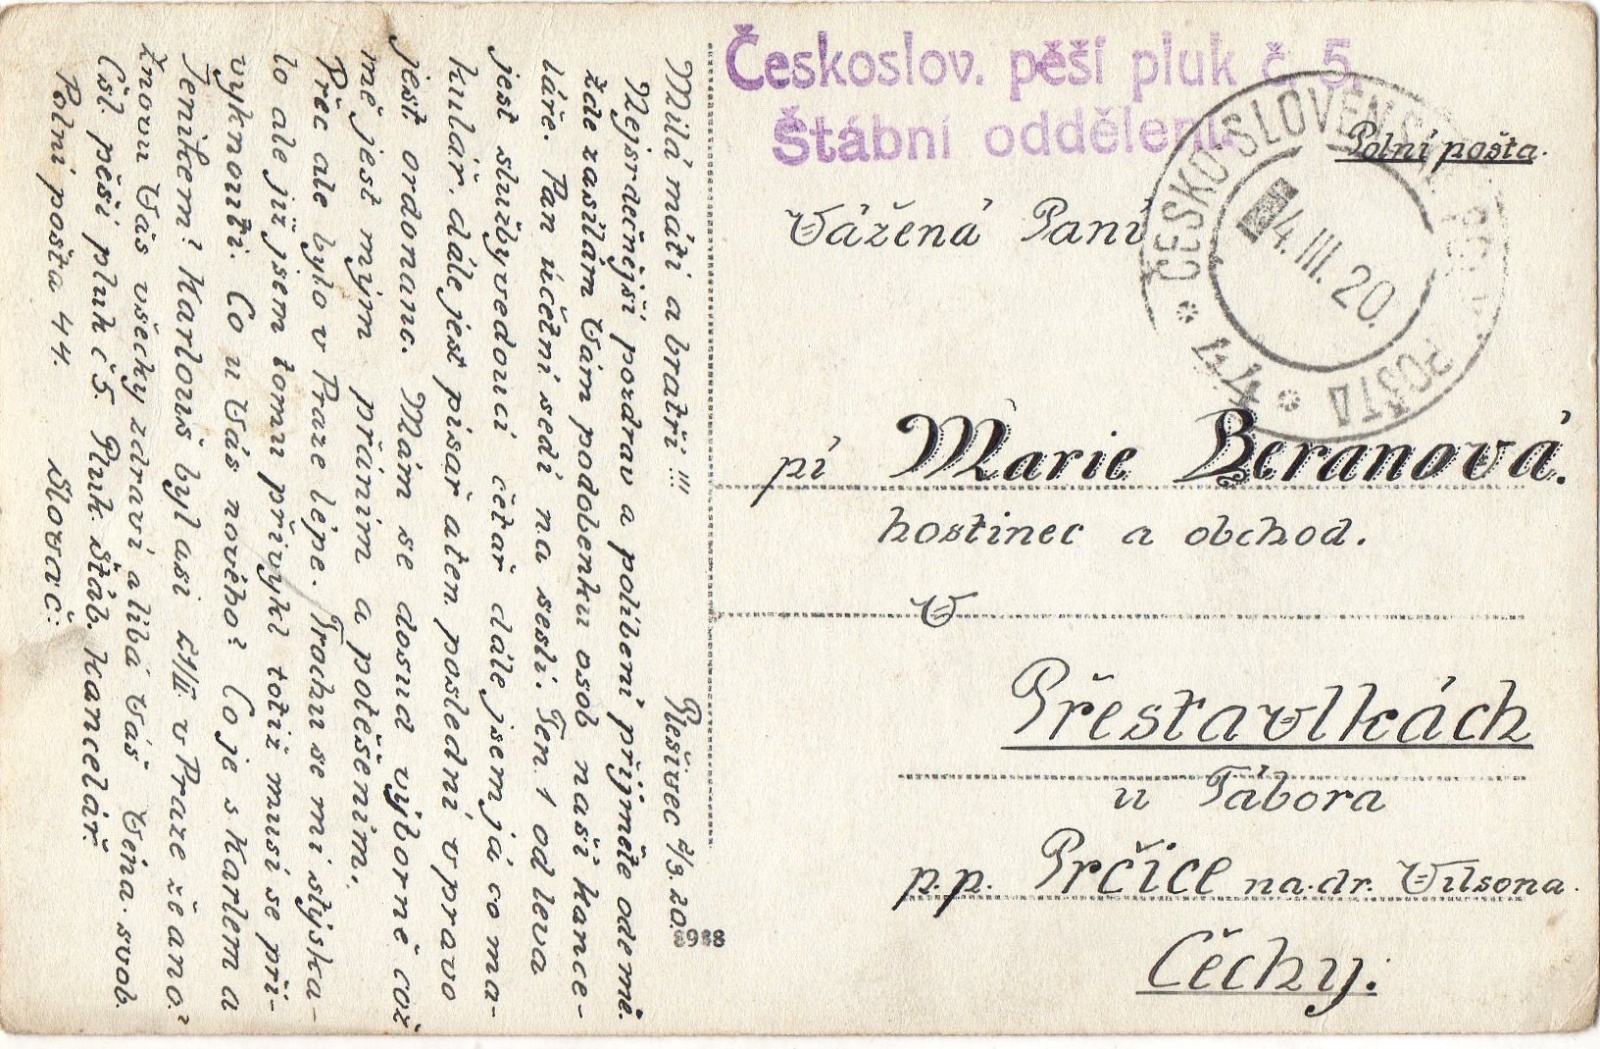 Českoslov. pěší pluk č. 5.
Štábní oddělení.
ČESKO-SLOVENSKÁ POLNÍ POŠTA
44
4.III.20.
Polní pošta.
Vážená Paní
pí Marie Beranová.
hostinec a obchod.
V
Přestavlkách
u Tábora
p.p. Prčice na.dr. Wilsona.
Čechy.
8988
Plešivec 2/3.20.
Milá máti a bratři!!!
Nejsrdečnější pozdrav a políbení přijměte odemě.
Zde zasílám Vám podobenku osob naší kance-
láře. Pan účetní sedí na sesli. Ten 1 od leva
jest službyvedoucí četař dále jsem já co ma-
kulář. dále jest písař a ten poslední v pravo
jest ordonanc. Mám se dosud výborně což
mě jest mým přáním a potěšením.
Přec ale bylo v Praze lépe. Trochu se mi stýska-
lo ale již jsem tomu přivykl totiž musí se při-
vyknouti. Co u Vás nového? Co je s Karlem a
Jeníkem? Karlouš byl asi v Praze že ano.?
Znovu Vás všecky zdraví a líbá Váš Véna. svob.
Čsl. pěší pluk č 5. Pluk. štáb. kancelář.
Polní pošta 44. Slovač: